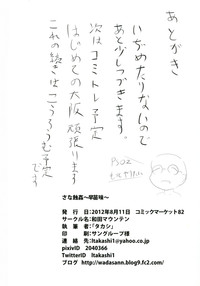 あとがき
いぢめたりないので
あと少しつづきます。
次はコミトレ予定
はじめての大阪頑張ります
これの続きはこうろうむ予定
です
さな触姦~早苗味~
発　行　日：2012年8月11日　コミックマーケット82
サークル名：和田マウンテン
執　筆　者：「タカシ」
印　　　刷：サングループ様
連　絡　先：ltakashi1@yahoo.co.jp
pixivID　2040366
TwitterID　ltakashi1
ブログ　http://wadasann.blog9.fc2.com/